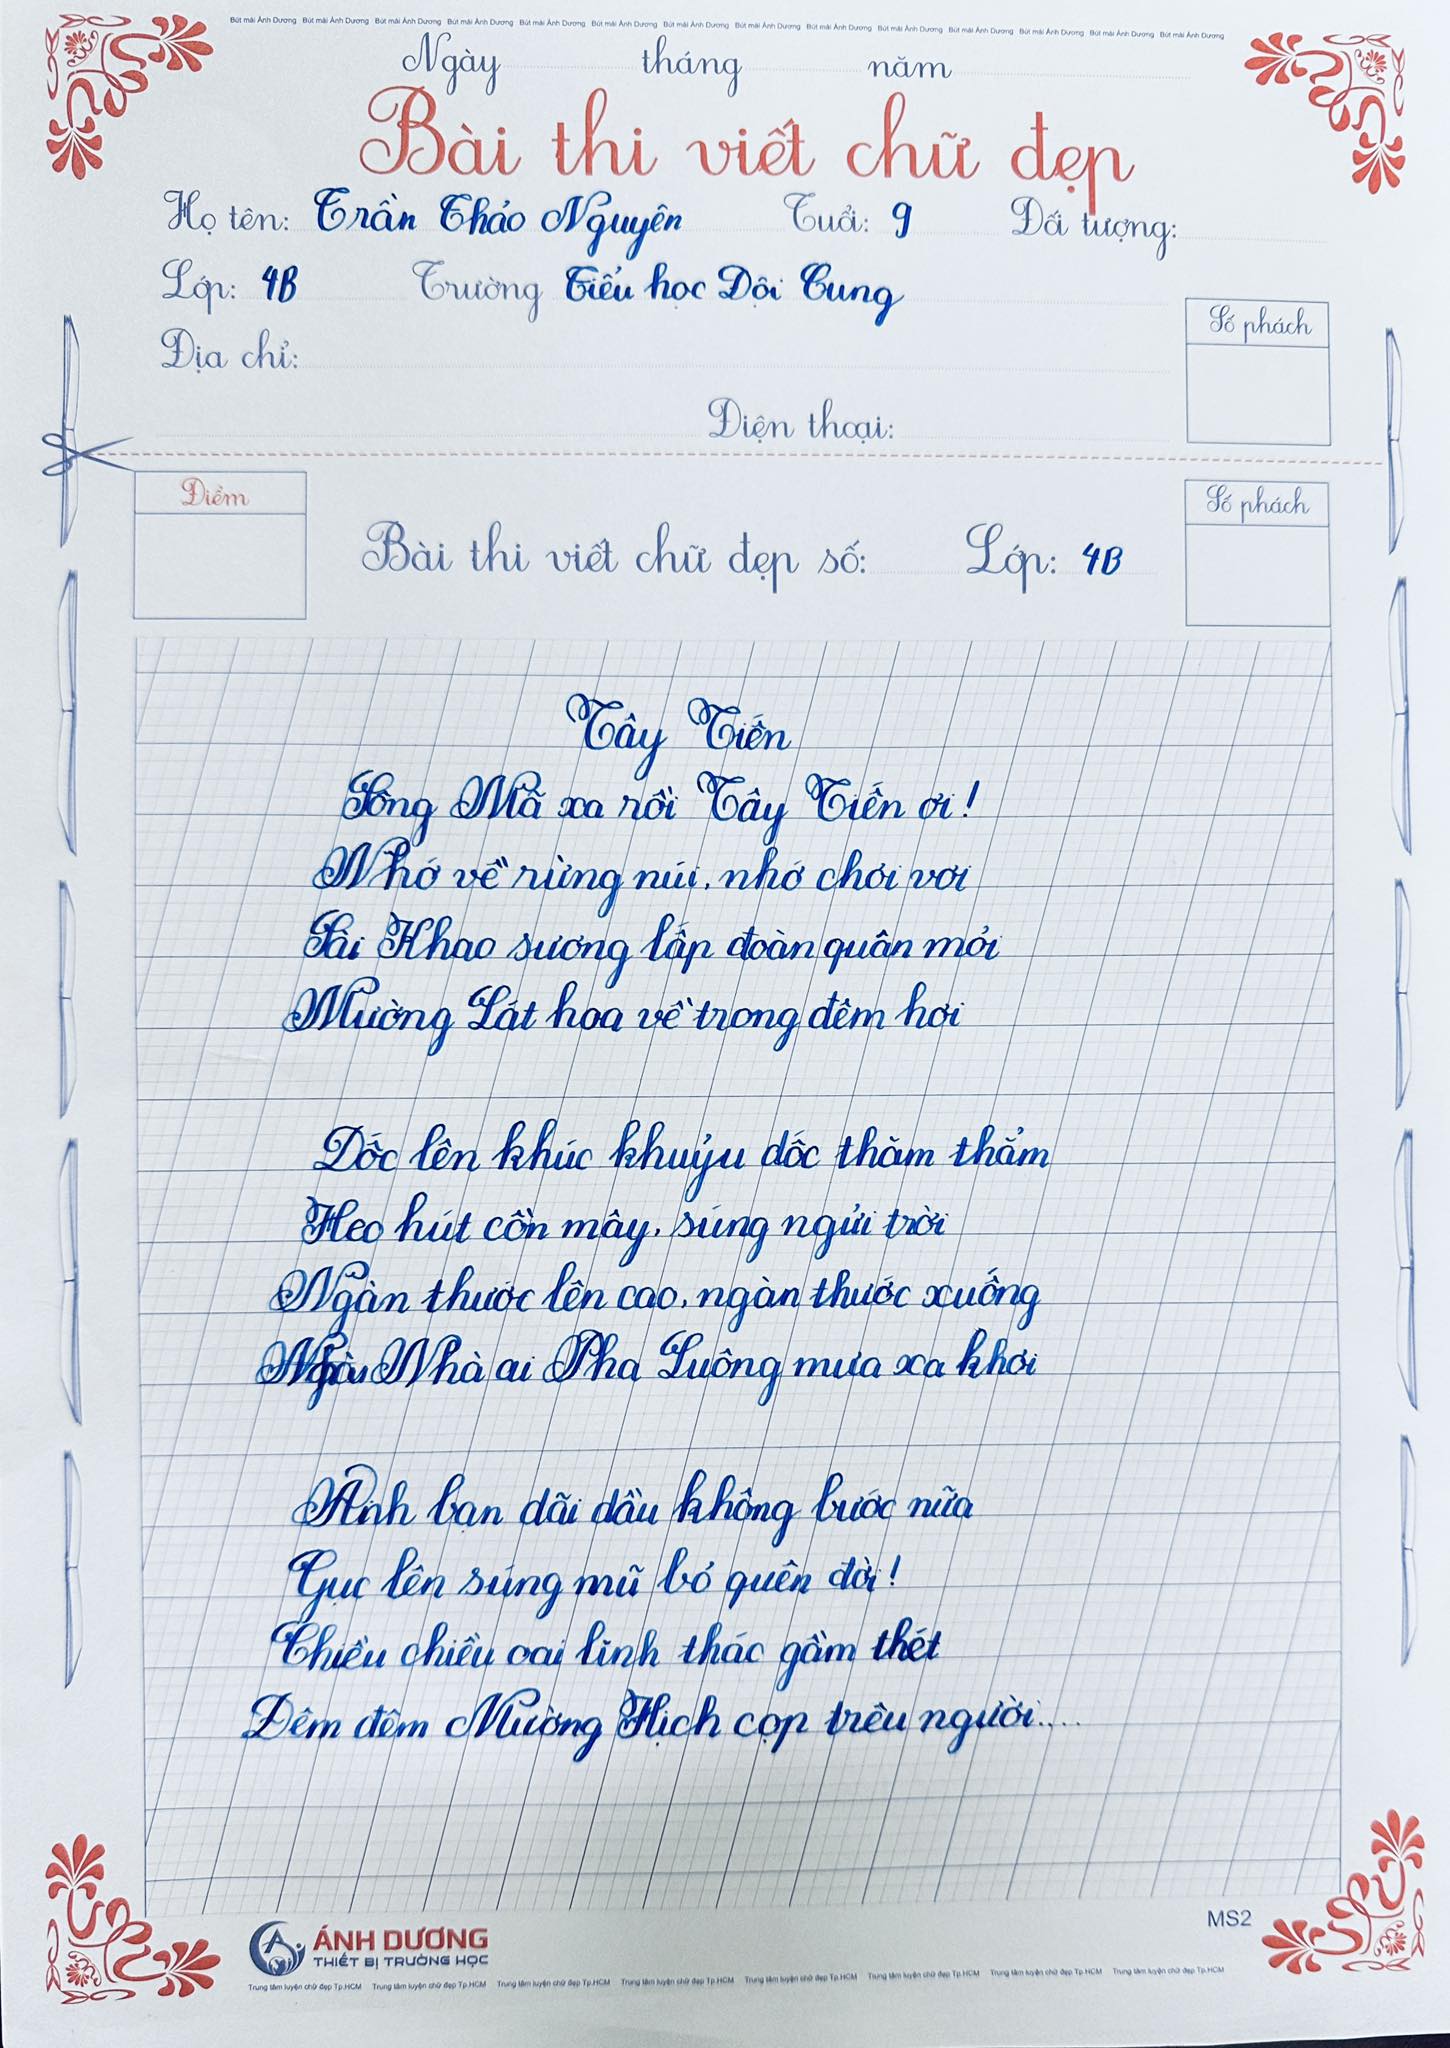 Bút mài Ánh Dương Bút mài Ánh Dương Bút mài Ánh Dương Bút mài Ánh Dương Bút mài Ánh Dương Bút mài Ánh Dương Bút mài Ánh Dương Bút mài Ánh Dương Bút mài Ánh Dương Bút mài Ánh Dương Bút mài Ánh Dương Bút mài Ánh Dương Bút mài Ánh Dương Bút mài Ánh Dương
Ngày tháng năm
Bài thi viết chữ đẹp
Họ tên: Trần Thảo Nguyên Tuổi: 9 Đối tượng:
Lớp: 4B Trường Tiểu học Đội Cung
Số phách
Địa chỉ:
Điện thoại:
Điểm
Số phách
Bài thi viết chữ đẹp số: Lớp: 4B
Tây Tiến
Sông Mã xa rồi Tây Tiến ơi!
Nhớ về rừng núi, nhớ chơi vơi
Sài Khao sương lấp đoàn quân mỏi
Mường Lát hoa về trong đêm hơi
Dốc lên khúc khuỷu dốc thăm thẳm
Heo hút cồn mây, súng ngửi trời
Ngàn thước lên cao, ngàn thước xuống
Nhà ai Pha Luông mưa xa khơi
Anh bạn dãi dầu không bước nữa
Gục lên súng mũ bỏ quên đời!
Chiều chiều oai linh thác gầm thét
Đêm đêm Mường Hịch cọp trêu người....
MS2
ÁNH DƯƠNG
THIẾT BỊ TRƯỜNG HỌC
Trung tâm luyện chữ đẹp Tp.HCM Trung tâm luyện chữ đẹp Tp.HCM Trung tâm luyện chữ đẹp Tp.HCM Trung tâm luyện chữ đẹp Tp.HCM Trung tâm luyện chữ đẹp Tp.HCM Trung tâm luyện chữ đẹp Tp.HCM Trung tâm luyện chữ đẹp Tp.HCM Trung tâm luyện chữ đẹp Tp.HCM